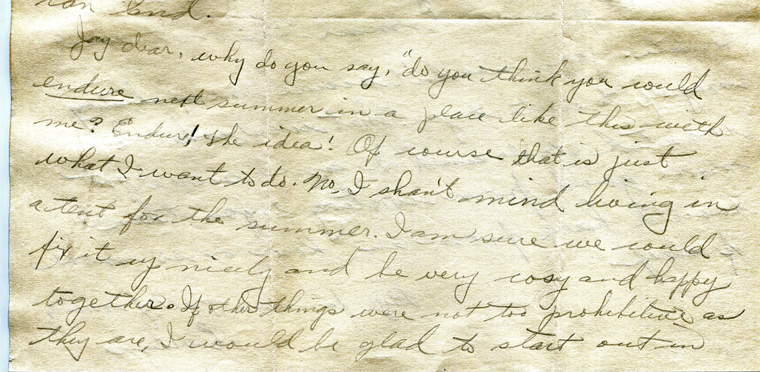 End.
Jay dear, why do you say, "do you think you would
endure next summer in a place like this with
me? Endure! the idea! Of course that is just
what I want to do. No, I shan't mind living in
a tent for the summer. I am sure we could
fix it up nicely and be very cosy and happy
together. If other things were not too prohibitive as
they are, I would be glad to start out in